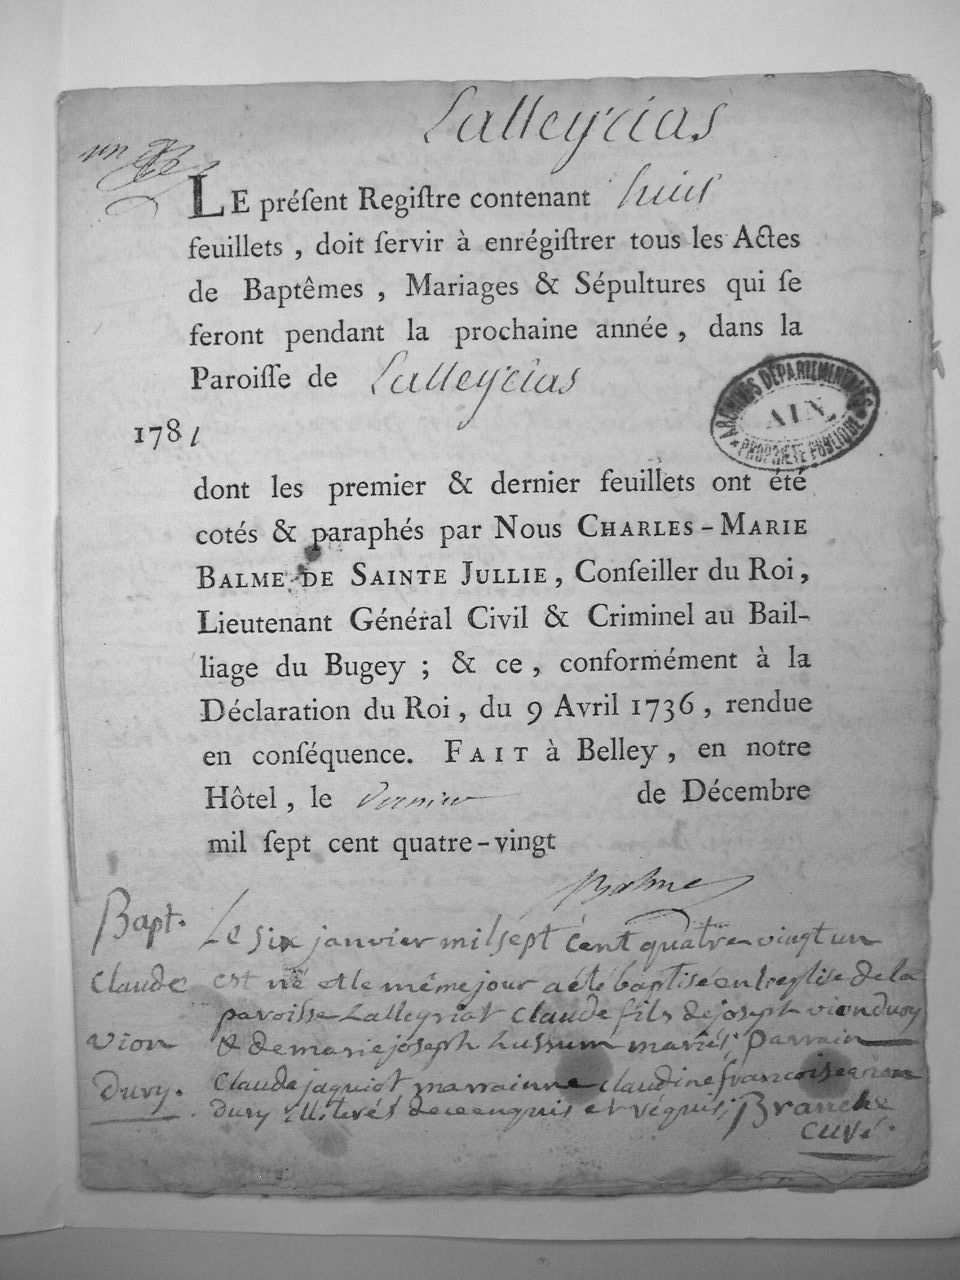 Lalleyrias
LE préſent Regiſtre contenant huit
feuillets, doit ſervir à enrégiſtrer tous les Actes
de Baptêmes, Mariages & Sépultures qui ſe
feront pendant la prochaine année, dans la
Paroiſſe de Lalleyrias
1781
ARCHIVES DÉPARTEMENTALES
AIN
PROPRIÉTÉ PUBLIQUE
dont les premier & dernier feuillets ont été
cotés & paraphés par Nous CHARLES-MARIE
BALME DE SAINTE JULLIE, Conſeiller du Roi,
Lieutenant Général Civil & Criminel au Bail-
liage du Bugey; & ce, conformément à la
Déclaration du Roi, du 9 Avril 1736, rendue
en conſéquence. FAIT à Belley, en notre
Hôtel, le dernier de Décembre
mil ſept cent quatre-vingt
Balme
Bapt. Le six janvier mil sept cent quatre vingt un
Claude est né et le même jour a été baptisé en l'eglise de la
paroisse Lalleyriat Claude fils de joseph vion dury
vion & de marie joseph hussum mariés. parrain
Dury. Claude jaquiot marrainne claudine francoise vion
dury illiterés de ce enquis et réquis. Branche
curé.